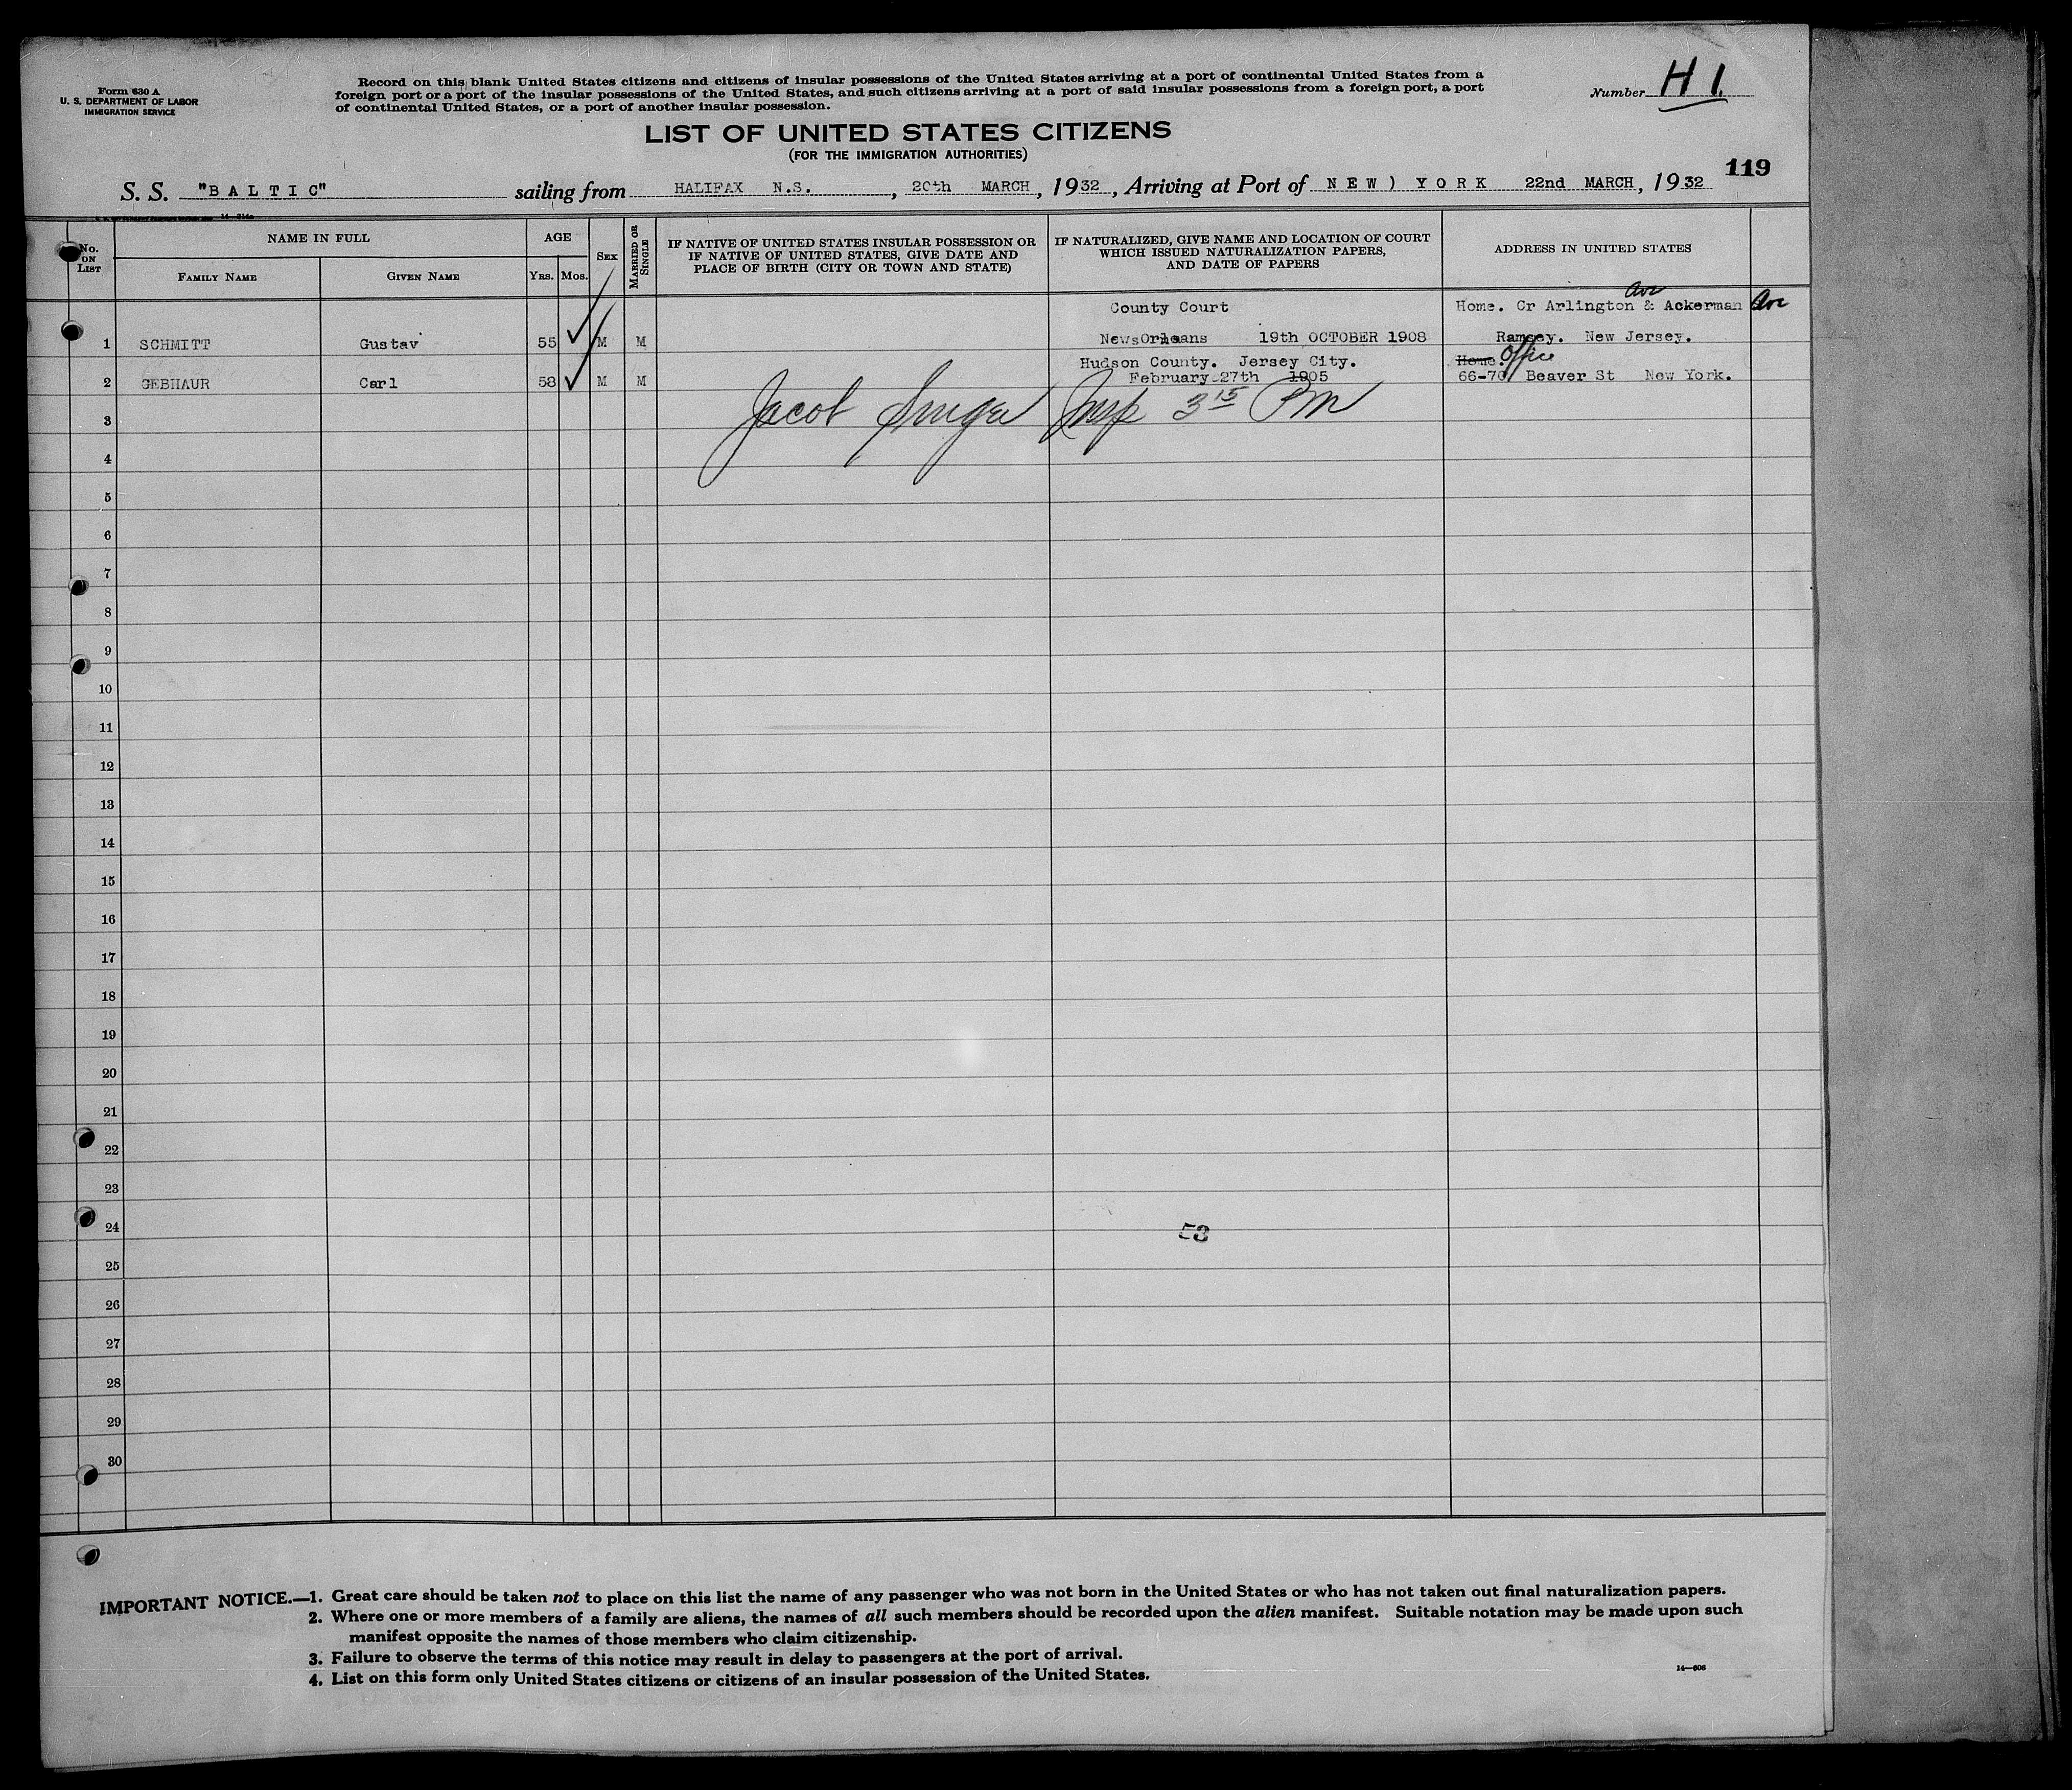 Form 630 A
U. S. DEPARTMENT OF LABOR
IMMIGRATION SERVICE
Record on this blank United States citizens and citizens of insular possessions of the United States arriving at a port of continental United States from a
foreign port or a port of the insular possessions of the United States, and such citizens arriving at a port of said insular possessions from a foreign port, a port
of continental United States, or a port of another insular possession.
Number H 1.
LIST OF UNITED STATES CITIZENS
(FOR THE IMMIGRATION AUTHORITIES)
119
S. S. "BALTIC" sailing from HALIFAX N.S. , 20th MARCH , 1932 , Arriving at Port of NEW) YORK 22nd MARCH , 1932
No. ON LIST
NAME IN FULL
FAMILY NAME
GIVEN NAME
AGE
Yrs.
Mos.
SEX
MARRIED OR SINGLE
IF NATIVE OF UNITED STATES INSULAR POSSESSION OR
IF NATIVE OF UNITED STATES, GIVE DATE AND
PLACE OF BIRTH (CITY OR TOWN AND STATE)
IF NATURALIZED, GIVE NAME AND LOCATION OF COURT
WHICH ISSUED NATURALIZATION PAPERS,
AND DATE OF PAPERS
ADDRESS IN UNITED STATES
County Court Home. Cr Arlington Ave & Ackerman Ave
1 SCHMITT Gustav 55 M M NewsOrleans 19th OCTOBER 1908 Ramsey. New Jersey.
Hudson County. Jersey City. Home. Office
2 GEBHAUR Carl 58 M M February 27th 1905 66-70 Beaver St New York.
3 Jacob Singer Insp 3 15 PM
4
5
6
7
8
9
10
11
12
13
14
15
16
17
18
19
20
21
22
23
24
53
25
26
27
28
29
30
IMPORTANT NOTICE.—1. Great care should be taken not to place on this list the name of any passenger who was not born in the United States or who has not taken out final naturalization papers.
2. Where one or more members of a family are aliens, the names of all such members should be recorded upon the alien manifest. Suitable notation may be made upon such
manifest opposite the names of those members who claim citizenship.
3. Failure to observe the terms of this notice may result in delay to passengers at the port of arrival.
4. List on this form only United States citizens or citizens of an insular possession of the United States.
14—606